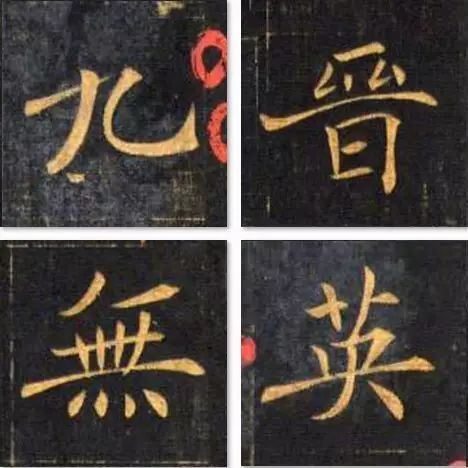 九晉
無英